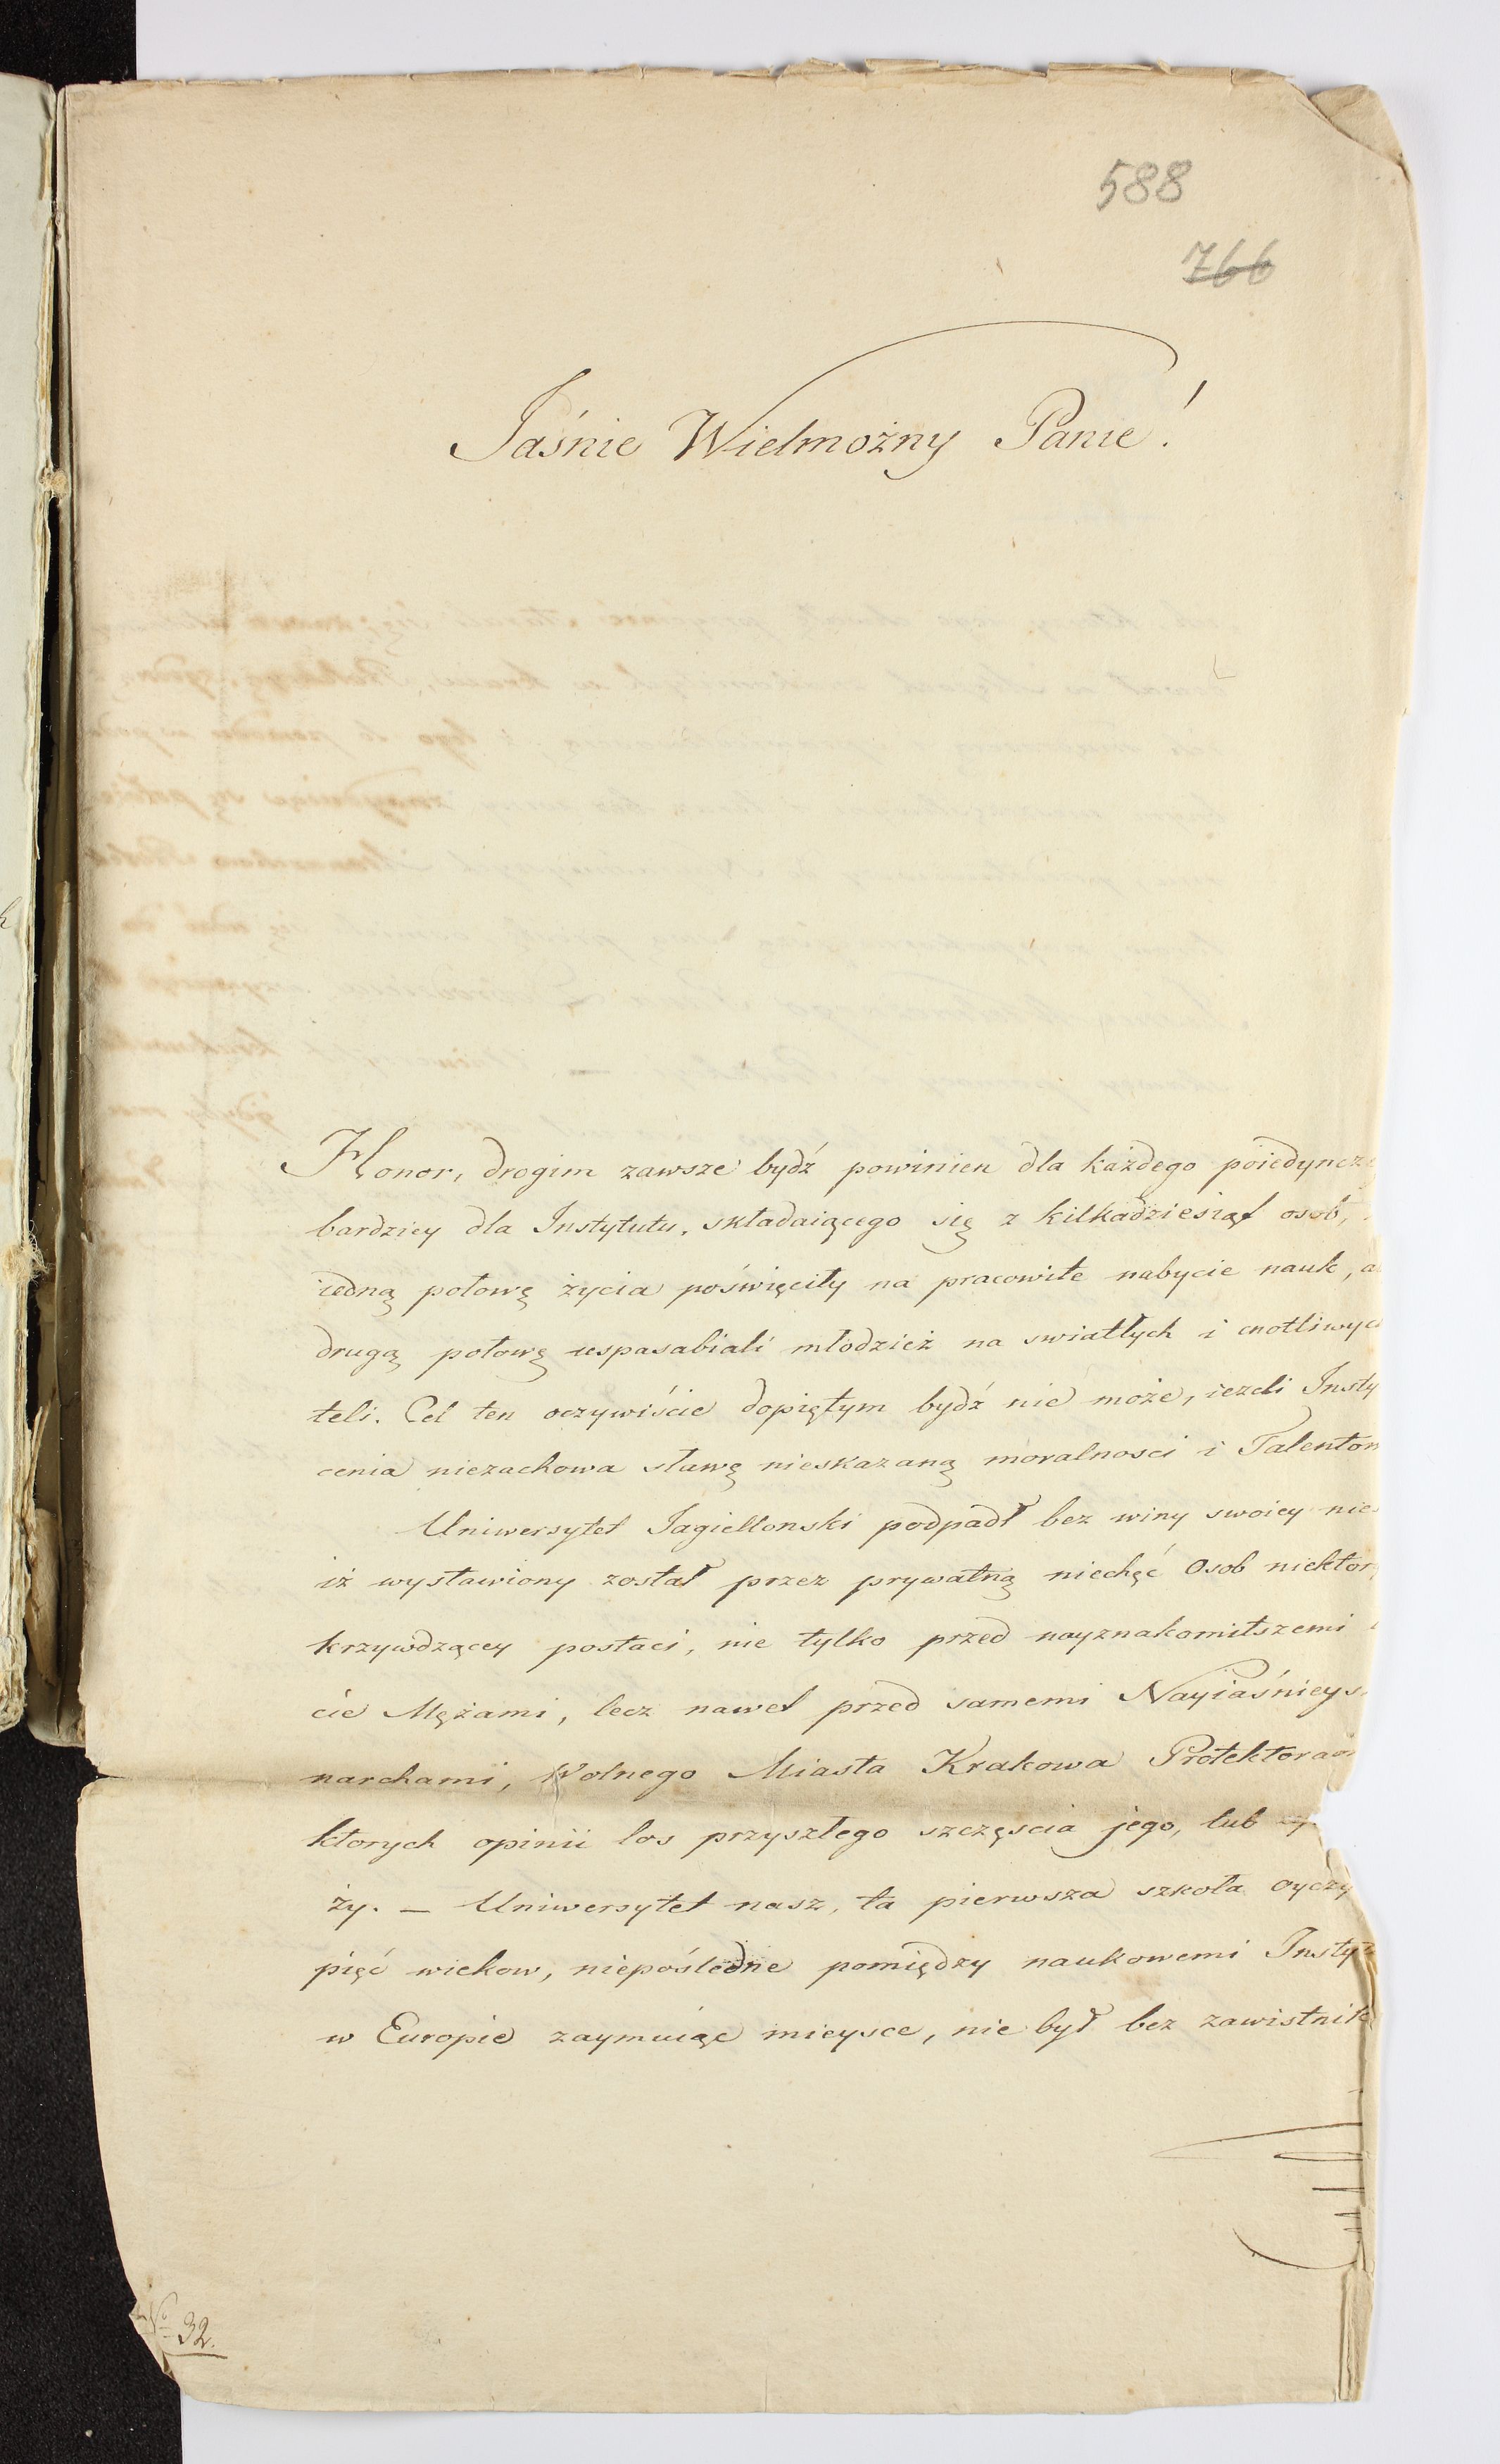 588
766
Jaśnie Wielmożny Panie!
Honor, drogim zawsze bydź powinien dla każdego poiedyncze
bardziey dla Instytutu, składaiącego się z kilkadziesiąt osob,
iedną połowę życia poświęciły na pracowite nabycie nauk, a
drugą połowę uspasabiali młodzież na swiatłych i cnotliwych
teli. Cel ten oczywiście dopiętym bydź nie może, ieżeli Insty
cenia niezachowa sławę nieskazaną moralnosci i Talentow
Uniwersytet Jagiellonski podpadł bez winy swoiey nie
iż wystawiony został przez prywatną niechęć Osob niektor
krzywdzącey postaci, nie tylko przed nayznakomitszemi
cie Mężami, lecz nawet przed samemi Nayiaśnieys
narchami, Wolnego Miasta Krakowa Protektora
ktorych opinii los przyszłego szczęscia jego, lub
ży. — Uniwersytet nasz, ta pierwsza szkoła oyczy
pięć wiekow, niepoślednie pomiędzy naukowemi Insty
w Europie zaymuiąc mieysce, nie był bez zawistnik
No 32.